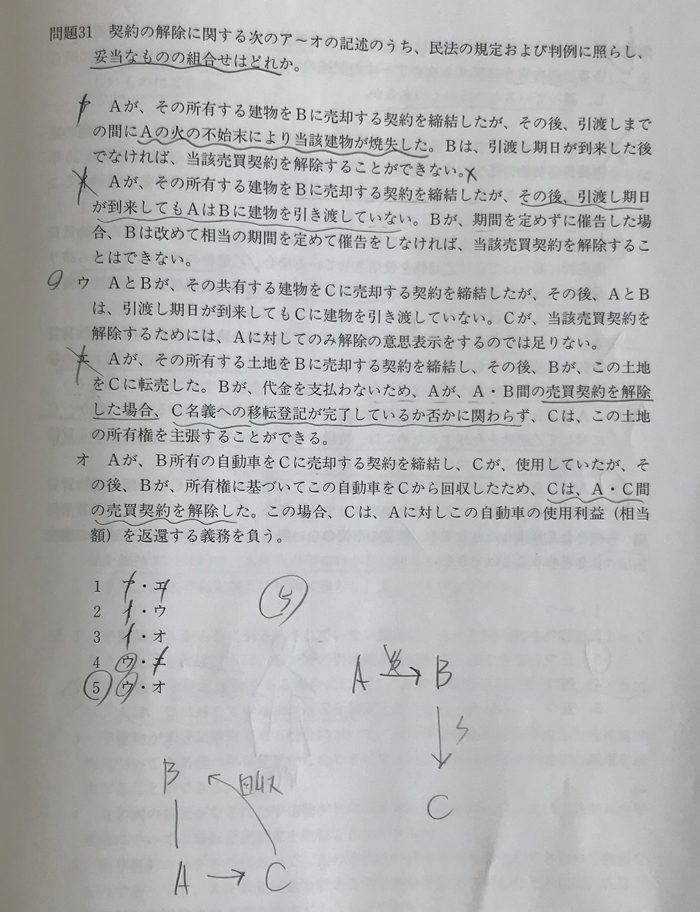 問題31 契約の解除に関する次のア～オの記述のうち、民法の規定および判例に照らし、
妥当なものの組合せはどれか。
ア Aが、その所有する建物をBに売却する契約を締結したが、その後、引渡しまで
の間にAの火の不始末により当該建物が焼失した。Bは、引渡し期日が到来した後
でなければ、当該売買契約を解除することができない。x
イ Aが、その所有する建物をBに売却する契約を締結したが、その後、引渡し期日
が到来してもAはBに建物を引き渡していない。Bが、期間を定めずに催告した場
合、Bは改めて相当の期間を定めて催告をしなければ、当該売買契約を解除するこ
とはできない。
ウ AとBが、その共有する建物をCに売却する契約を締結したが、その後、AとB
は、引渡し期日が到来してもCに建物を引き渡していない。Cが、当該売買契約を
解除するためには、Aに対してのみ解除の意思表示をするのでは足りない。
エ Aが、その所有する土地をBに売却する契約を締結し、その後、Bが、この土地
をCに転売した。Bが、代金を支払わないため、Aが、A・B間の売買契約を解除
した場合、C名義への移転登記が完了しているか否かに関わらず、Cは、この土地
の所有権を主張することができる。
オ Aが、B所有の自動車をCに売却する契約を締結し、Cが、使用していたが、そ
の後、Bが、所有権に基づいてこの自動車をCから回収したため、Cは、A・C間
の売買契約を解除した。この場合、Cは、Aに対しこの自動車の使用利益（相当
額）を返還する義務を負う。
1 ア・エ
2 イ・ウ
3 イ・オ
4 ウ・エ
5 ウ・オ
5
A → B
C
B 回収
A → C